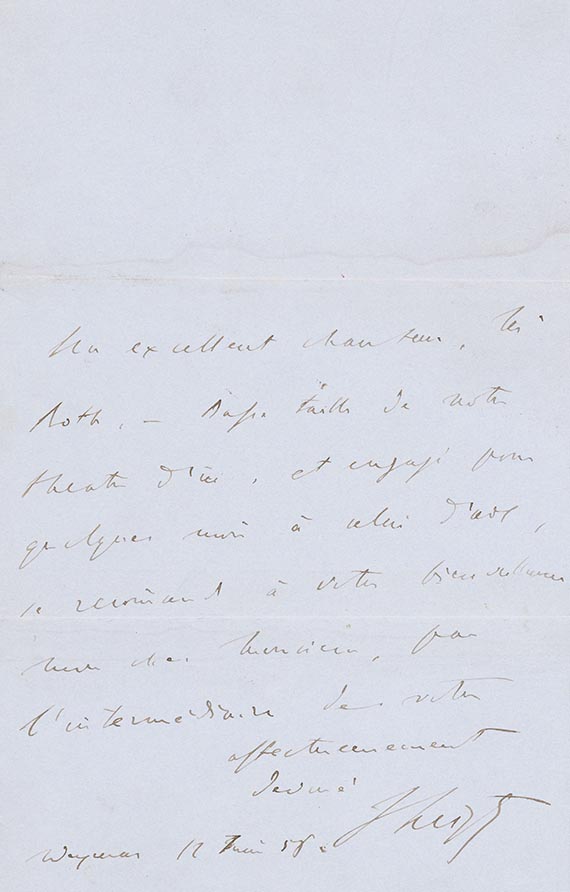 Un excellent chanteur, Mr
Roth, – Basse taille de notre
theatre d'ici, et engagé pour
quelques mois à celui d'
se recom̄and à votre bienveillance
mon cher Monsieur, par
l'intermédiaire de votre
affectueusement
devoué
FLiszt
Weymar 12 Juin 58.